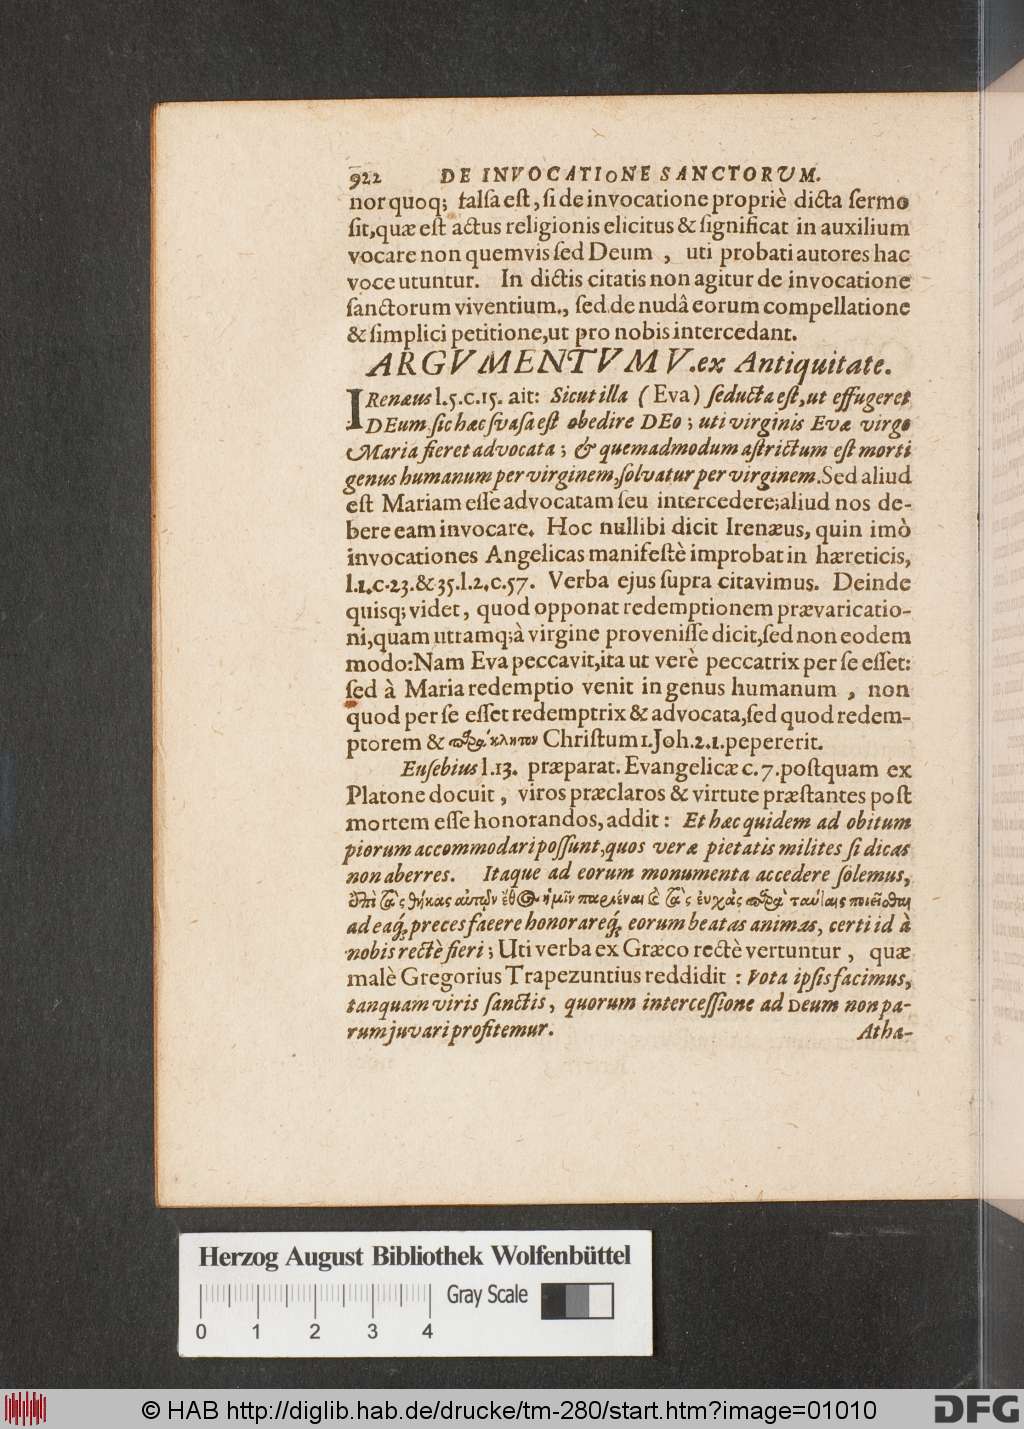 922 DE INVOCATIONE SANCTORUM.
nor quoq; falsa est, si de invocatione propriè dicta sermo
sit, quæ est actus religionis elicitus & significat in auxilium
vocare non quemvis sed Deum, uti probati autores hac
voce utuntur. In dictis citatis non agitur de invocatione
sanctorum viventium., sed de nudâ eorum compellatione
& simplici petitione, ut pro nobis intercedant.
ARGVMENTVM V. ex Antiquitate.
IRenæus l. 5. c. 15. ait: Sicut illa (Eva) seducta est, ut effugeret
DEum, sic hæc svasa est obedire DEo; uti virginis Evæ virgo
Maria fieret advocata; & quemadmodum astrictum est morti
genus humanum per virginem, solvatur per virginem. Sed aliud
est Mariam esse advocatam seu intercedere; aliud nos de-
bere eam invocare. Hoc nullibi dicit Irenæus, quin imò
invocationes Angelicas manifestè improbat in hæreticis,
l. 1. c. 23. & 35. l. 2. c. 57. Verba ejus supra citavimus. Deinde
quisq; videt, quod opponat redemptionem prævaricatio-
ni, quam utramq; à virgine provenisse dicit, sed non eodem
modo: Nam Eva peccavit, ita ut verè peccatrix per se esset:
sed à Maria redemptio venit in genus humanum, non
quod per se esset redemptrix & advocata, sed quod redem-
ptorem & παράκλητον Christum 1. Joh. 2. 1. pepererit.
Eusebius l. 13. præparat. Evangelicæ c. 7. postquam ex
Platone docuit, viros præclaros & virtute præstantes post
mortem esse honorandos, addit: Et hæc quidem ad obitum
piorum accommodari possunt, quos veræ pietatis milites si dicas
non aberres. Itaque ad eorum monumenta accedere solemus,
ὅθεν ἐπὶ τὰς θήκας αὐτῶν ἔθος ἡμῖν παριέναι καὶ τὰς εὐχὰς παρὰ ταύταις ποιεῖσθαι
ad eaq; preces facere honorareq; eorum beatas animas, certi id à
nobis rectè fieri; Uti verba ex Græco rectè vertuntur, quæ
malè Gregorius Trapezuntius reddidit: Vota ipsis facimus,
tanquam viris sanctis, quorum intercessione ad Deum non pa-
rum juvari profitemur. Atha-
Herzog August Bibliothek Wolfenbüttel
Gray Scale
0 1 2 3 4
© HAB http://diglib.hab.de/drucke/tm-280/start.htm?image=01010
DFG